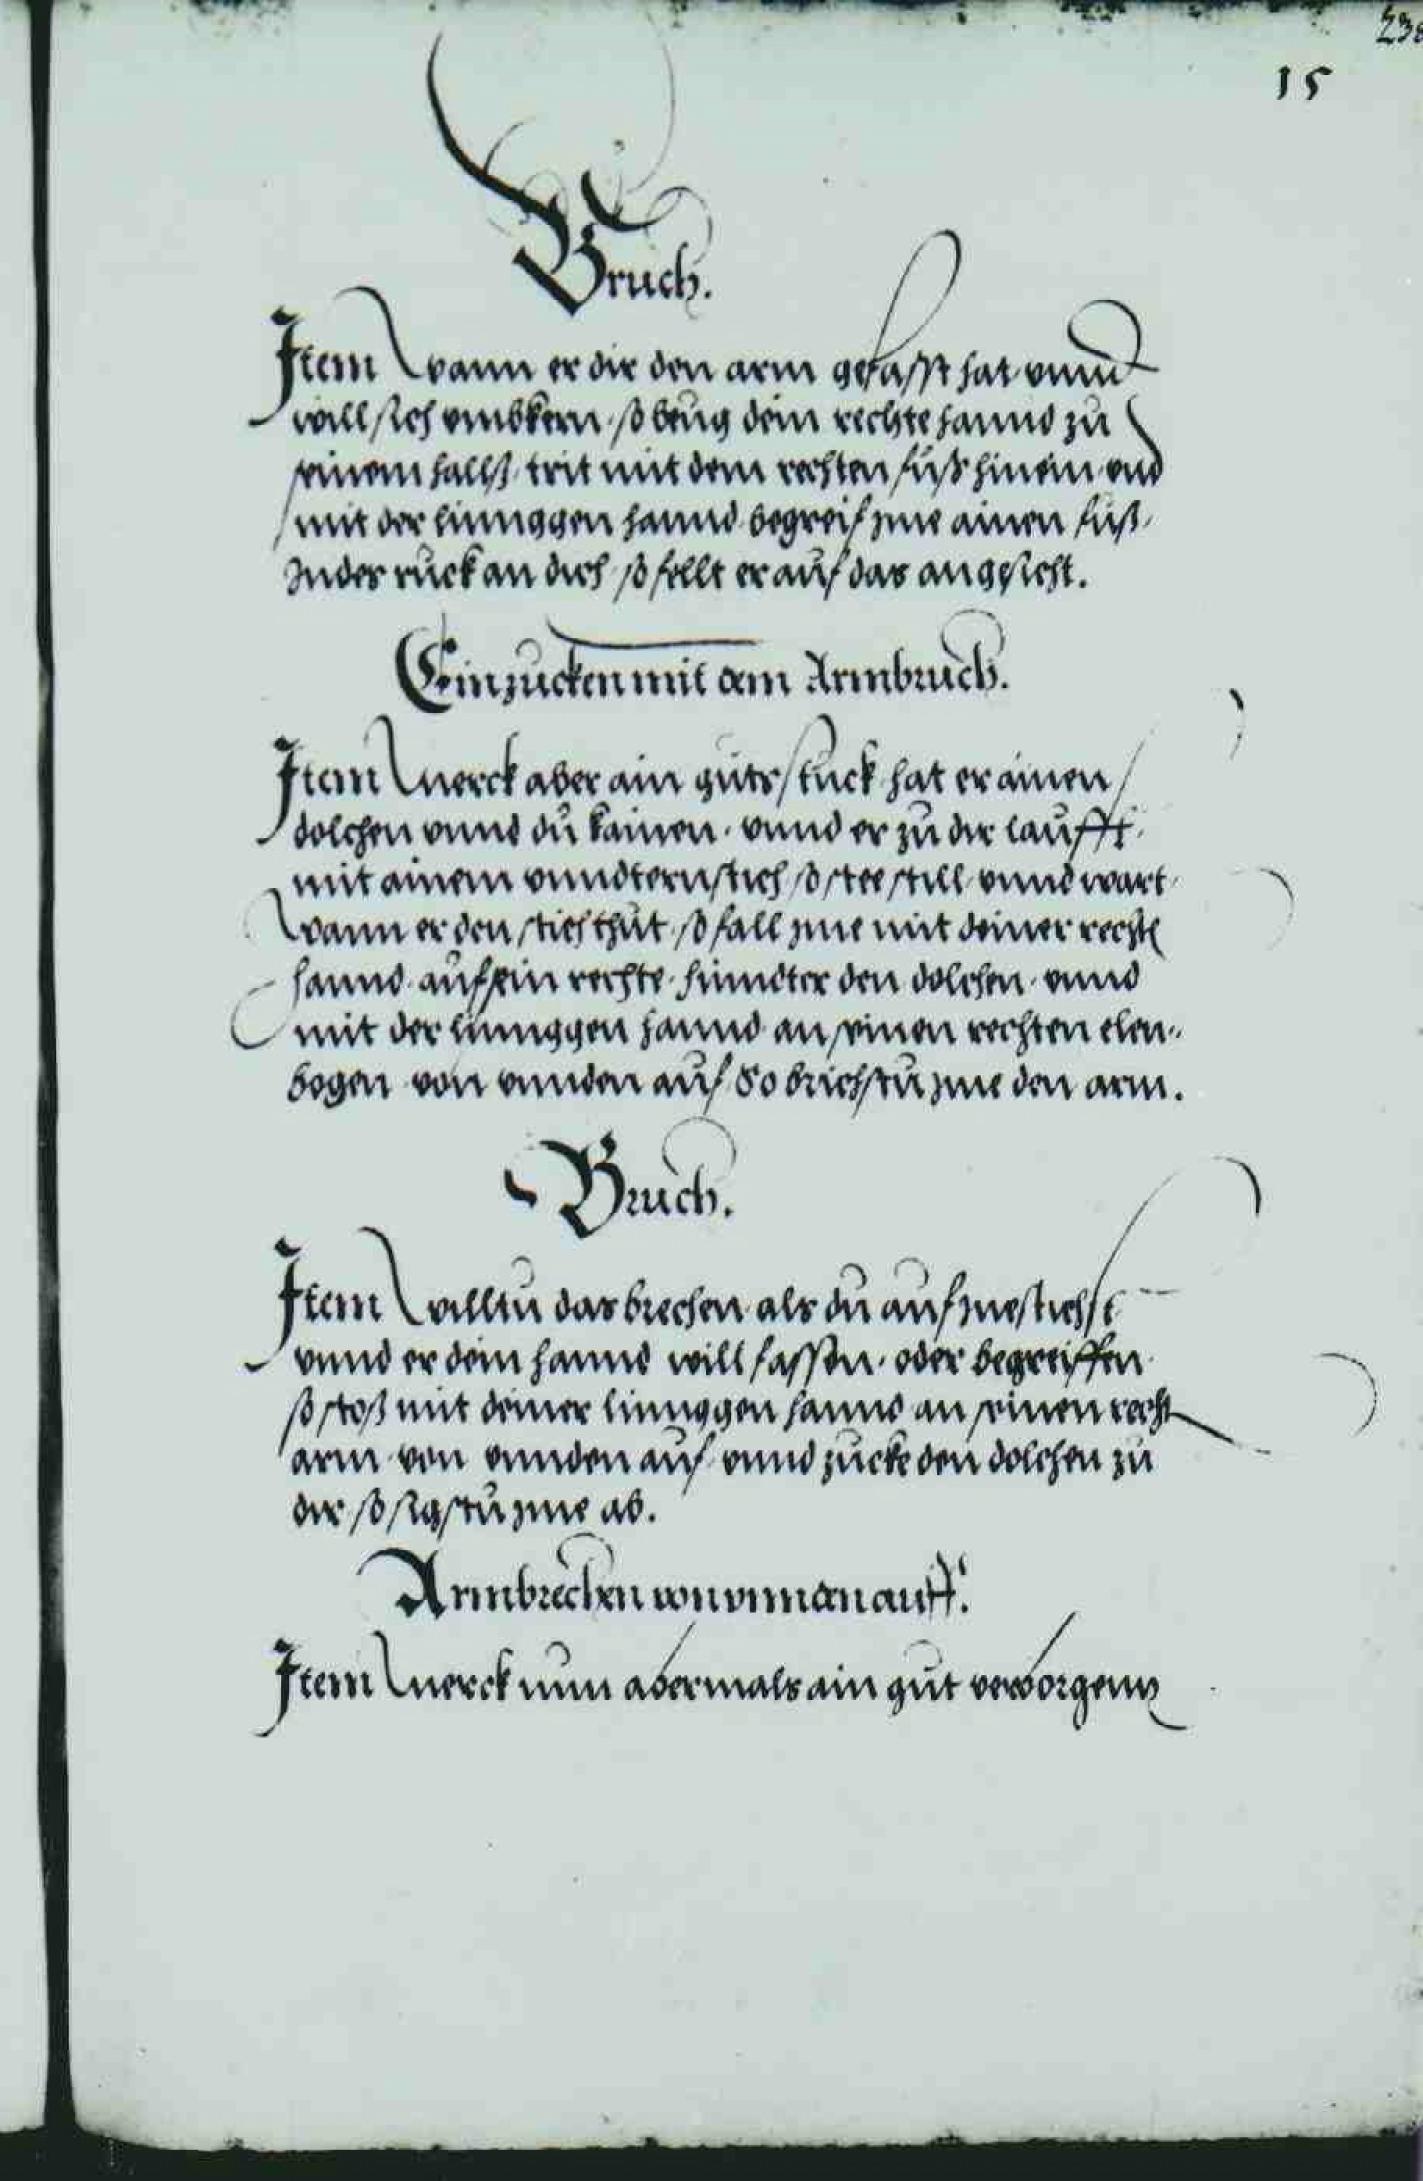 238
15
Bruch.
Item wann er dir den arm gefasst hat vnnd
will sich vmbkern, so beug dein rechte hannd zu
seinem hallß, trit mit dem rechten fuß hinein, vnd
mit der linnggen hannd begreif jme ainen fuß,
Inndes ruck an dich, so fellt er auf das angesicht.
Ein zucken mit dem Armbruch.
Item merck aber ain guts stuck, hat er ainen
dolchen vnnd du kainen, vnnd er zu dir laufft,
mit ainem vnndternstich, so stee still vnnd wart,
wann er den stich thut, so fall jme mit deiner rechten
hannd auf sein rechte, hinndter den dolchen, vnnd
mit der linnggen hannd an seinen rechten elen-
bogen von vnnden auf, So brichstu jme den arm.
Bruch.
Item willtu das brechen, als du auf jne stichst
vnnd er dein hannd will fassen, oder begreiffen
so stoß mit deiner linnggen hannd an seinen recht
arm von vnnden auf, vnnd zucke den dolchen zu
dir, so sigstu jme ab.
Armbrechen von vnnden auff.
Item merck nun abermals ain gut verborgenns